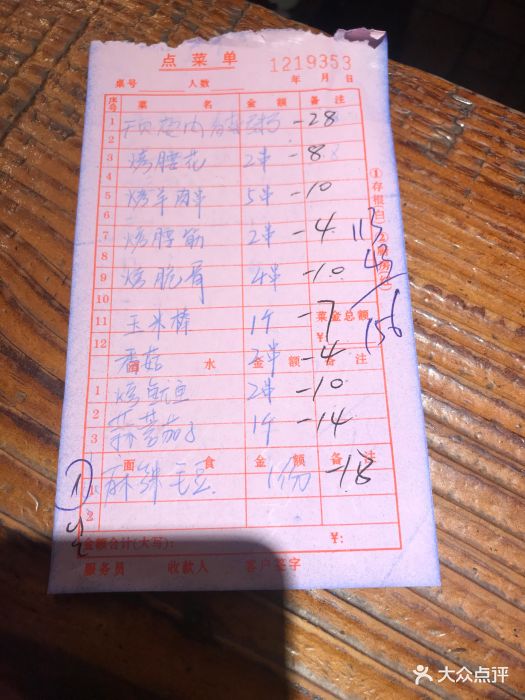 点菜单
1219353
桌号 人数 年 月 日
序号 菜 名 金 额 备 注
1
2 -28
3 烤腰花 2串 -8
4
5 烤羊肉串 5串 -10
6
7 烤蹄筋 2串 -4
8
9 烤脆骨 4串 -10
10
11 玉米棒 1个 -7 菜金总额
12 ¥
香菇 2串 -4
酒 水 金 额 备 注
1 烤鱿鱼 2串 -10
2
3 茄子 1个 -14
面 食 金 额 备 注
1 麻辣毛豆 1份 -18
2
金额合计(大写): ¥:
服务员 收款人 客户签字
①存根(白)
113
43
156
大众点评